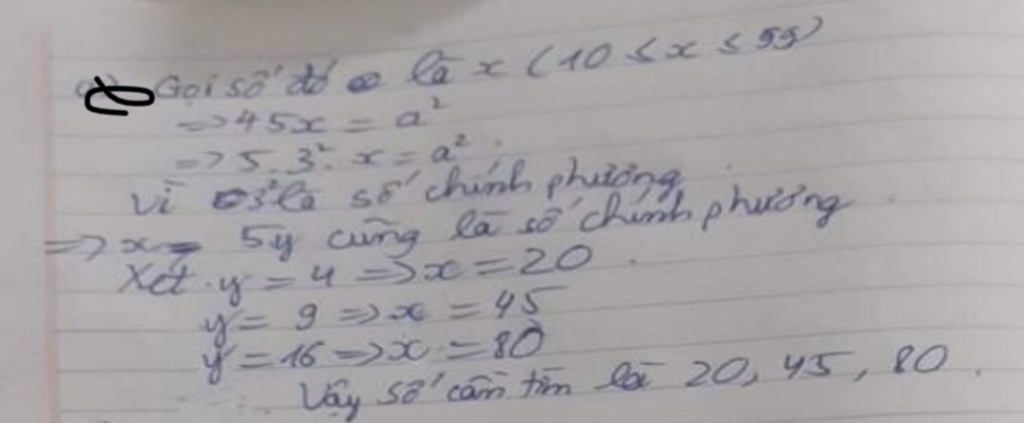 Gọi số đó là x (10 ≤ x ≤ 99)
=> 45x = a²
=> 5.3².x = a².
Vì 3² là số chính phương
=> x = 5y cũng là số chính phương.
Xét y = 4 => x = 20.
y = 9 => x = 45
y = 16 => x = 80
Vậy số cần tìm là 20, 45, 80.